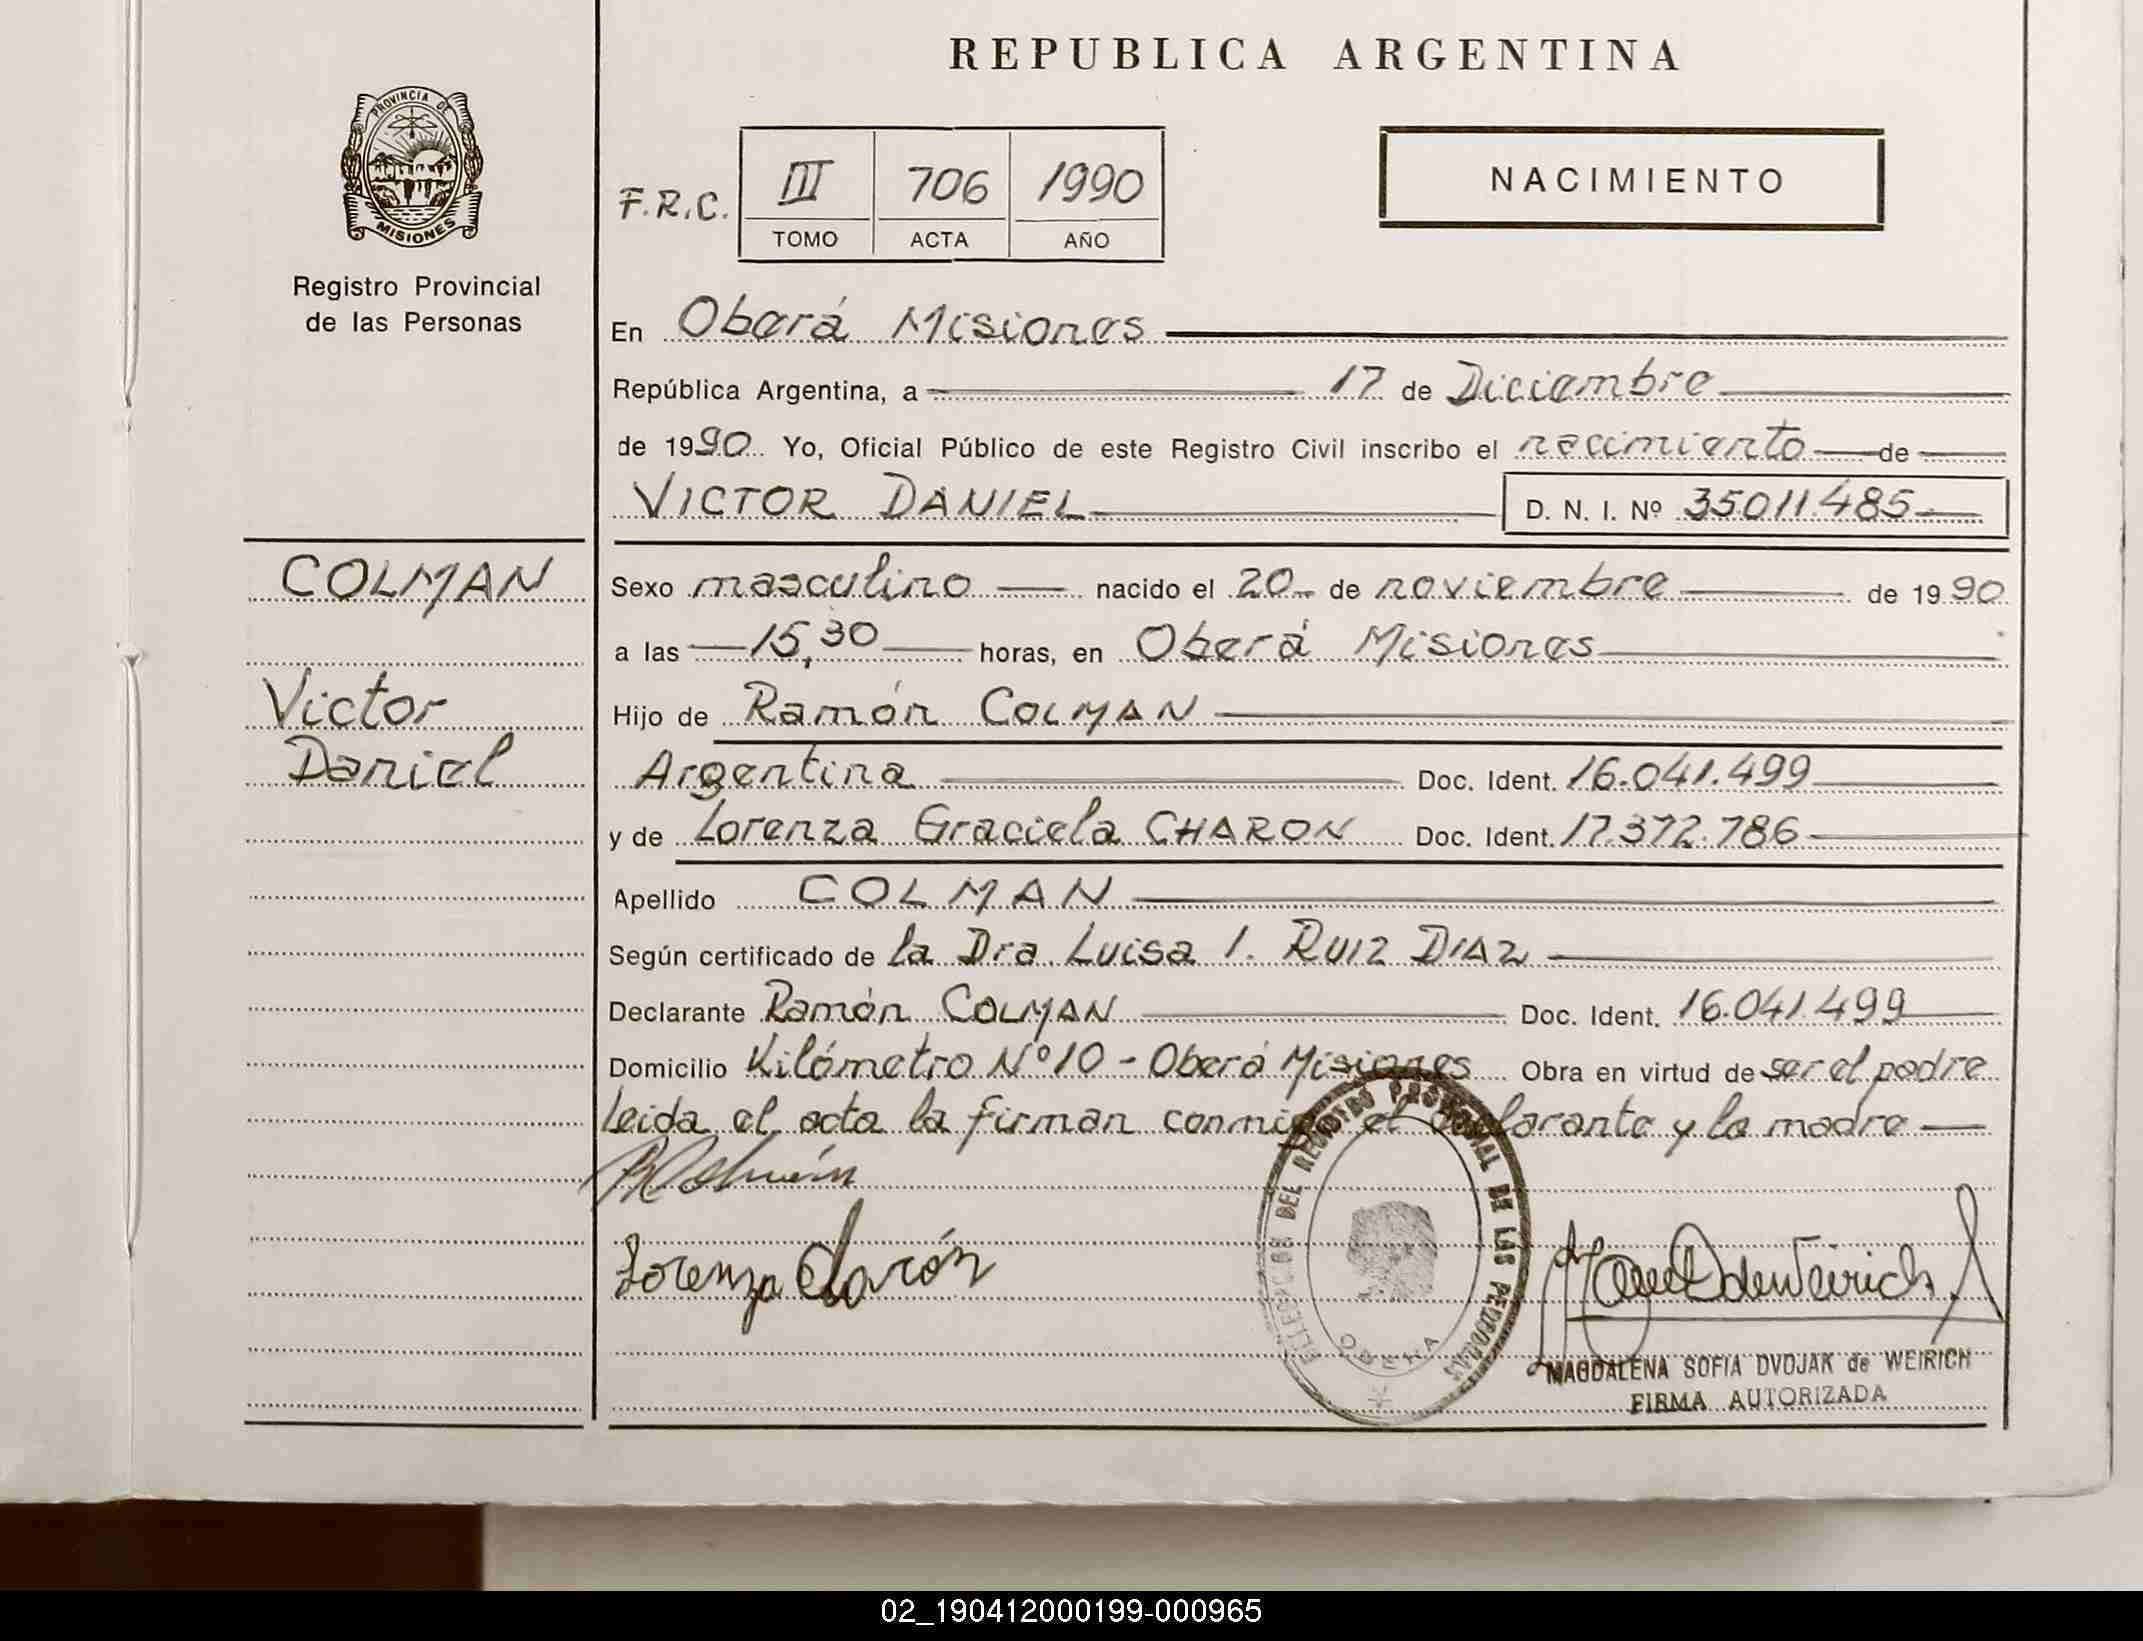 REPUBLICA ARGENTINA
PROVINCIA DE
MISIONES
Registro Provincial
de las Personas
F.R.C. III 706 1990
TOMO ACTA AÑO
NACIMIENTO
En Oberá Misiones
República Argentina, a 17 de Diciembre
de 1990 Yo, Oficial Público de este Registro Civil inscribo el nacimiento de
VICTOR DANIEL D. N. I. Nº 35.011.485
COLMAN
Victor
Daniel
Sexo masculino nacido el 20 de noviembre de 1990
a las 15,30 horas, en Oberá Misiones
Hijo de Ramón COLMAN
Argentina Doc. Ident. 16.041.499
y de Lorenza Graciela CHARON Doc. Ident. 17.372.786
Apellido COLMAN
Según certificado de la Dra. Luisa I. RUIZ DIAZ
Declarante Ramón COLMAN Doc. Ident. 16.041.499
Domicilio Kilómetro Nº 10 - Oberá Misiones Obra en virtud de ser el padre
Leida el acta la firman conmigo el declarante y la madre
Lorenza Charón
DEL REGISTRO PROVINCIAL DE LAS PERSONAS
OBERA
MAGDALENA SOFIA DVOJAK de WEIRICH
FIRMA AUTORIZADA
02_190412000199-000965